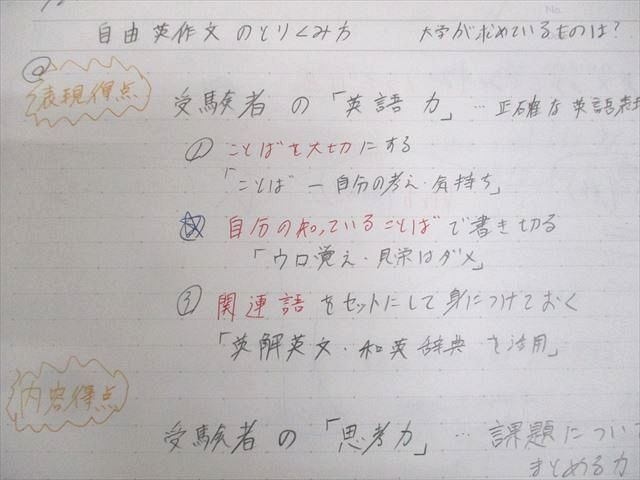 自由英作文のとりくみ方　大学が求めているものは?
表現得点
受験者の「英語力」…正確な英語表現
① ことばを大切にする
「ことば ー 自分の考え・気持ち」
② 自分の知っていることばで書き切る
「ウロ覚え・見栄はダメ」
③ 関連語をセットにして身につけておく
「英解英文・和英辞典を活用」
内容得点
受験者の「思考力」…課題につい
まとめる力